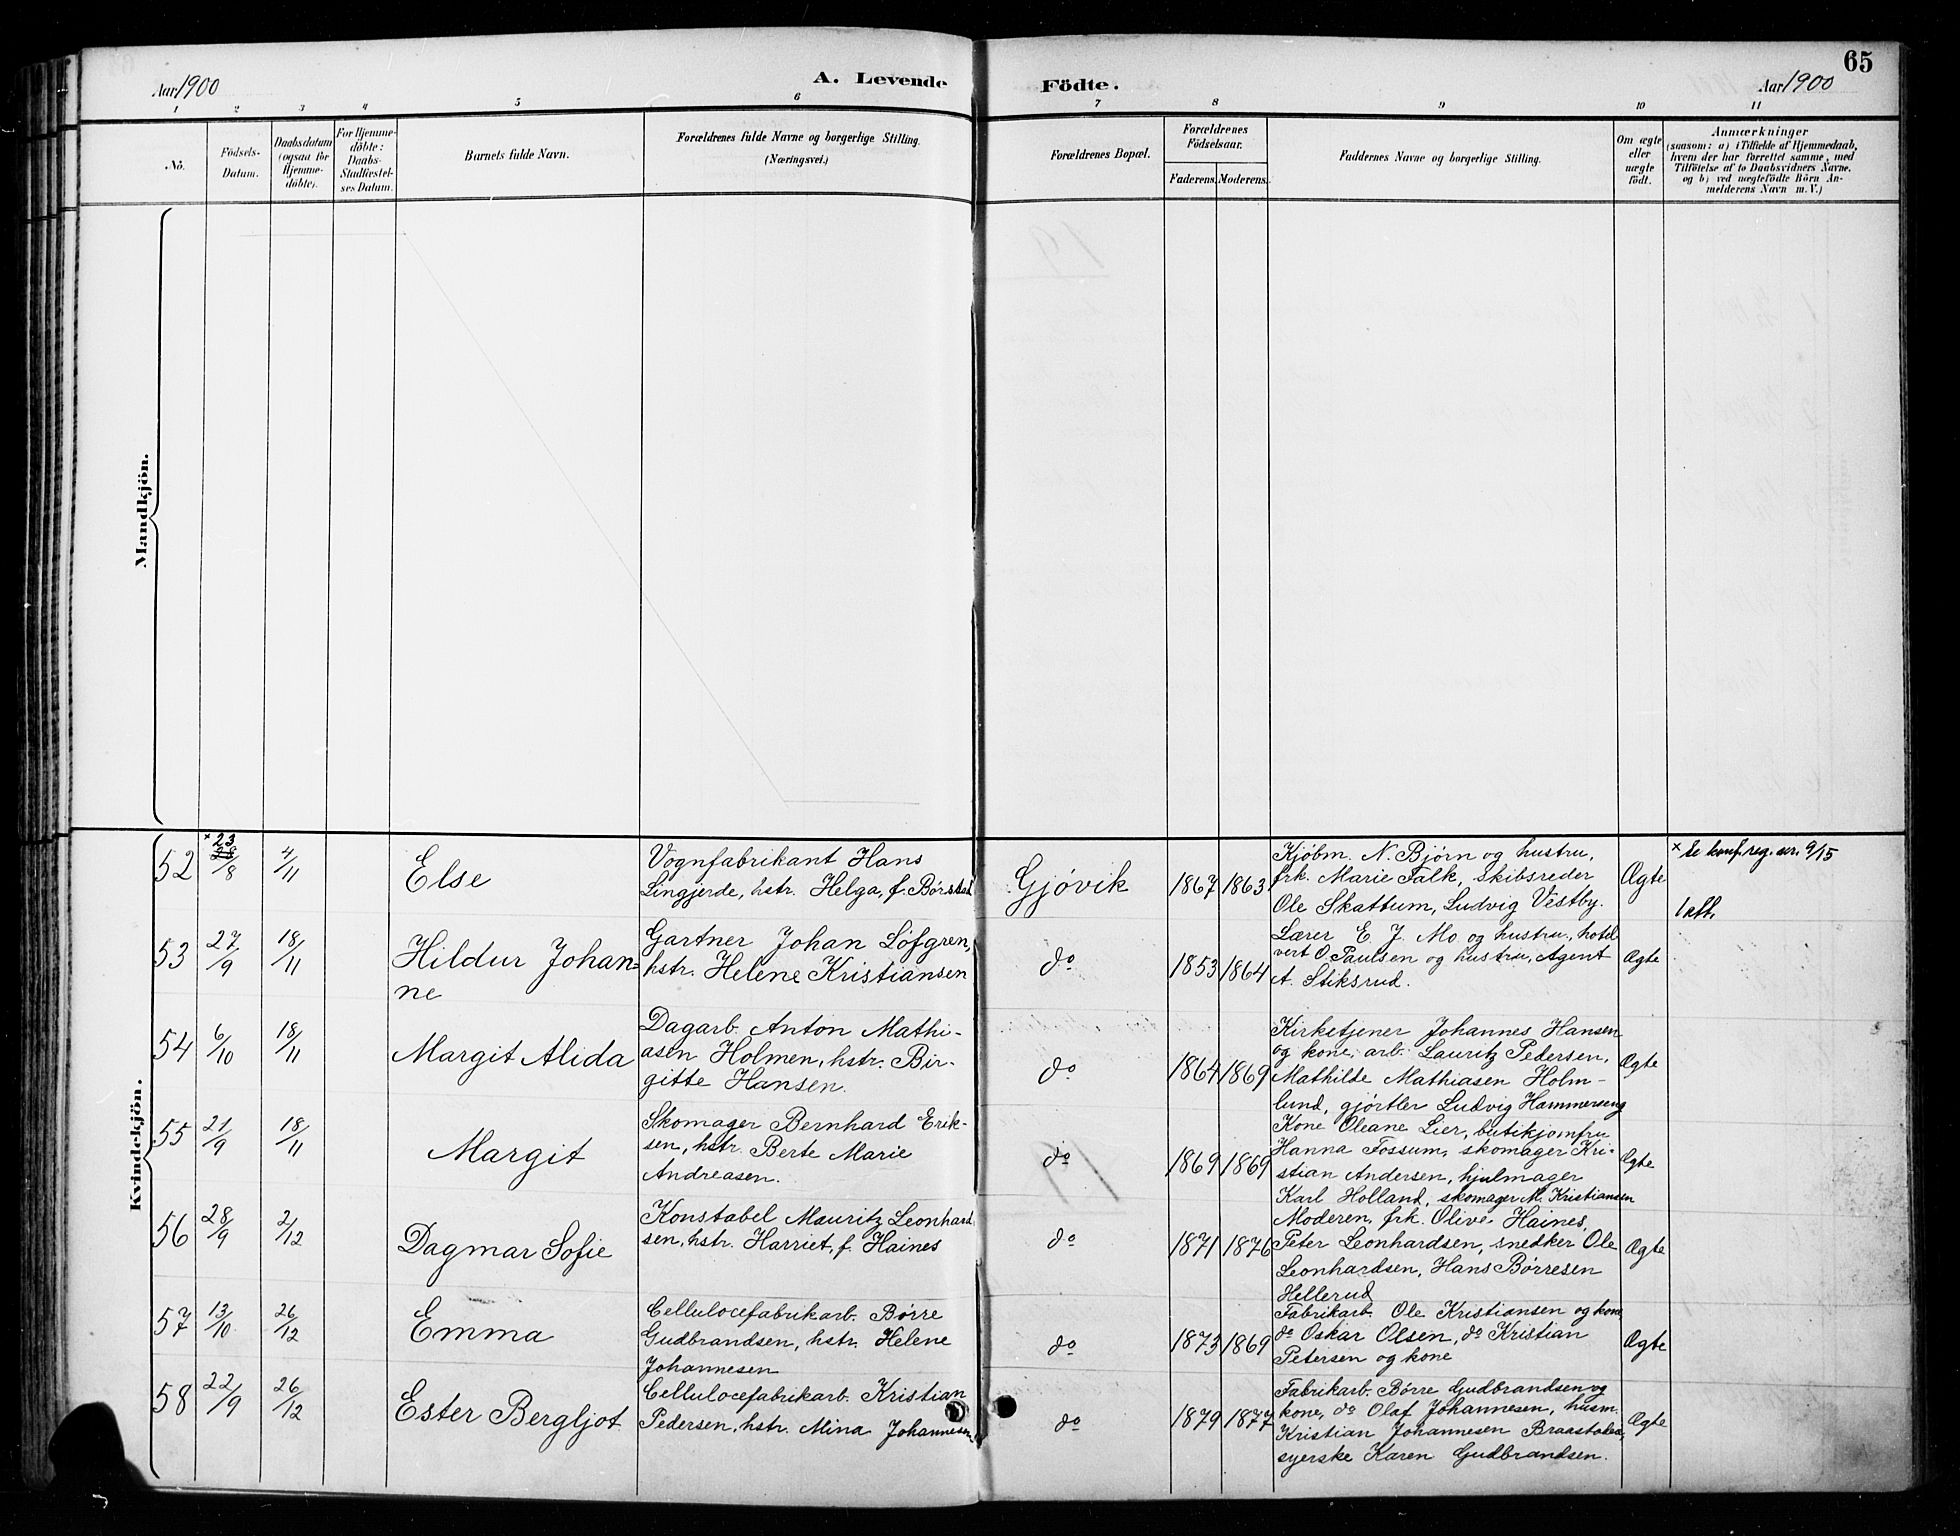 65
Aar 1900
A. Levende Födte.
Aar 1900
1 2 3 4 5 6 7 8 9 10 11
No.
Födsels-
Datum.
Daabsdatum
(ogsaa for
Hjemme-
döbte).
For Hjemme-
döbte:
Daabs-
Stadfæstel-
ses Datum.
Barnets fulde Navn.
Forældrenes fulde Navne og borgerlige Stilling.
(Næringsvei.)
Forældrenes Bopæl.
Forældrenes
Födselsaar.
Faderens. Moderens.
Faddernes Navne og borgerlige Stilling.
Om ægte
eller
uægte
födt.
Anmærkninger
(saasom: a) i Tilfælde af Hjemmedaab,
hvem der har forrettet samme, med
Tilföielse af to Daabsvidners Navne,
og b) ved uægtefödte Börn An-
melderens Navn m. V.)
Mandkjön.
Kvindekjön.
52
× 23
28/8
4/11
Else
Vognfabrikant Hans
Lingjerde, hstr. Helga, f. Børstad
Gjøvik
1867 1863
Kjøbm. N. Bjørn og hustru,
frk. Marie Falk, skibsreder
Ole Skattum, Ludvig Vestby.
Ægte
× Se konf. reg. nr. 9/15
1 att.
53
27/9
18/11
Hildur Johan-
ne
Gartner Johan Löfgren,
hstr. Helene Kristiansen
do
1853 1864
Lærer E. J. Mo og hustru, hotel
vert O. Paulsen og hustru, Agent
A. Stiksrud.
Ægte
54
6/10
18/11
Margit Alida
Dagarb. Anton Mathi-
asen Holmen, hstr. Bir-
gitte Hansen.
do
1864 1869
Kirketjener Johannes Hansen
og kone, arb. Lauritz Pedersen,
Mathilde Mathiasen Holm-
lund, gjørtler Ludvig Hammerseng
Ægte
55
21/9
18/11
Margit
Skomager Bernhard Erik-
sen, hstr. Berte Marie
Andreasen.
do
1869 1869
Kone Oleane Lier, butikjomfru
Hanna Fossum, skomager Kri-
stian Andersen, hjulmager
Karl Holland, skomager M. Kristiansen
Ægte
56
28/9
2/12
Dagmar Sofie
Konstabel Mauritz Leonhard
sen, hstr. Harriet, f. Haines
do
1871 1876
Moderen, frk. Olive Haines,
Peter Leonhardsen, snedker Ole
Leonhardsen, Hans Børresen
Hellerud
Ægte
57
13/10
26/12
Emma
Cellulocefabrikarb. Børre
Gudbrandsen, hstr. Helene
Johannesen
do
1873 1869
Fabrikarb. Ole Kristiansen og kone,
do Oskar Olsen, do Kristian
Petersen og kone
Ægte
58
22/9
26/12
Ester Bergljot
Cellulocefabrikarb. Kristian
Pedersen, hstr. Mina Johannesen
do
1879 1877
Fabrikarb. Børre Gudbrandsen og
kone, do Olaf Johannesen, husm.
Kristian Johannesen
syerske Karen Gudbrandsen.
Ægte